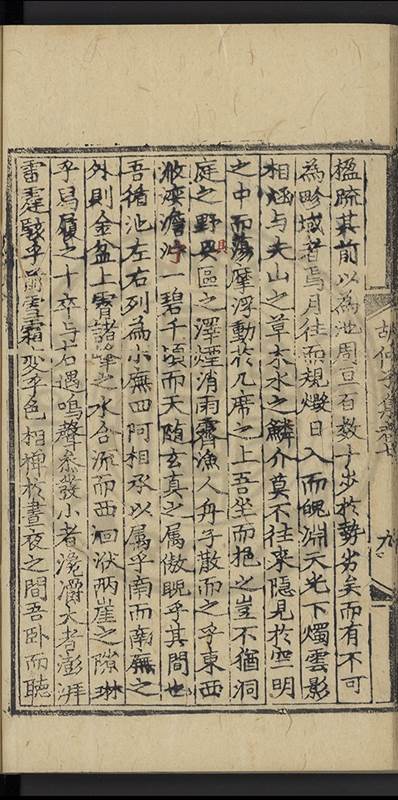 胡仲子集卷七
九
楹疏其前以為池周亘百數十步於勢劣矣而有不可
為畛域者焉月往而規燬日入而魄淵天光下燭雲影
相涵与夫山之草木水之鱗介莫不往來隱見於空明
之中而蕩摩浮動於几席之上吾坐而挹之豈不猶洞
庭之野具區之澤煙消雨霽漁人舟子散而之乎東西
攸渙澹泞一碧千頃而天随玄真之属傲睨乎其間也
吾循池左右列為小廡四阿相承以属乎南而南廡之
外則金盆上霄諸峰之水合流而西洄洑两崖之隙琳
乎舄履之下卒与石遇鳴聲叅發小者瀺灂大者澎湃
雷霆駭乎前雪霜变乎色相禅於晝夜之間吾卧而聽